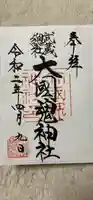 奉拝
武蔵総社
大國魂神社
令和二年四月九日